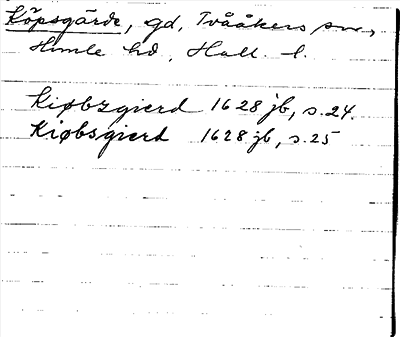 Köpsgärde, gd, Tvååkers sn,
Himle hd, Hall. l.
Kiøbzgierd 1628 jb, s. 24.
Kiøbsgierd 1628 jb, s. 25